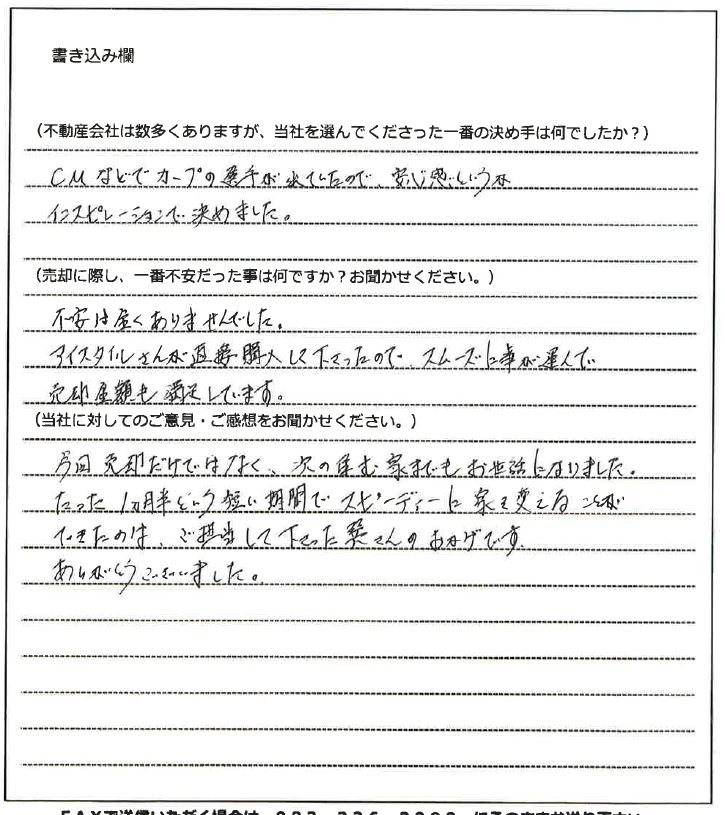 書き込み欄
(不動産会社は数多くありますが、当社を選んでくださった一番の決め手は何でしたか?)
CMなどでカープの選手が出ていたので、安心感というか
インスピレーションで決めました。
(売却に際し、一番不安だった事は何ですか?お聞かせください。)
不安は全くありませんでした。
アイスタイルさんが直接購入して下さったので、スムーズに事が運んで
売却金額も満足しています。
(当社に対してのご意見・ご感想をお聞かせください。)
今回売却だけではなく、次の住む家までもお世話になりました。
たった1ヵ月半という短い期間でスピーディーに家を変えることが
できたのは、ご担当して下さったさんのおかげです。
ありがとうございました。